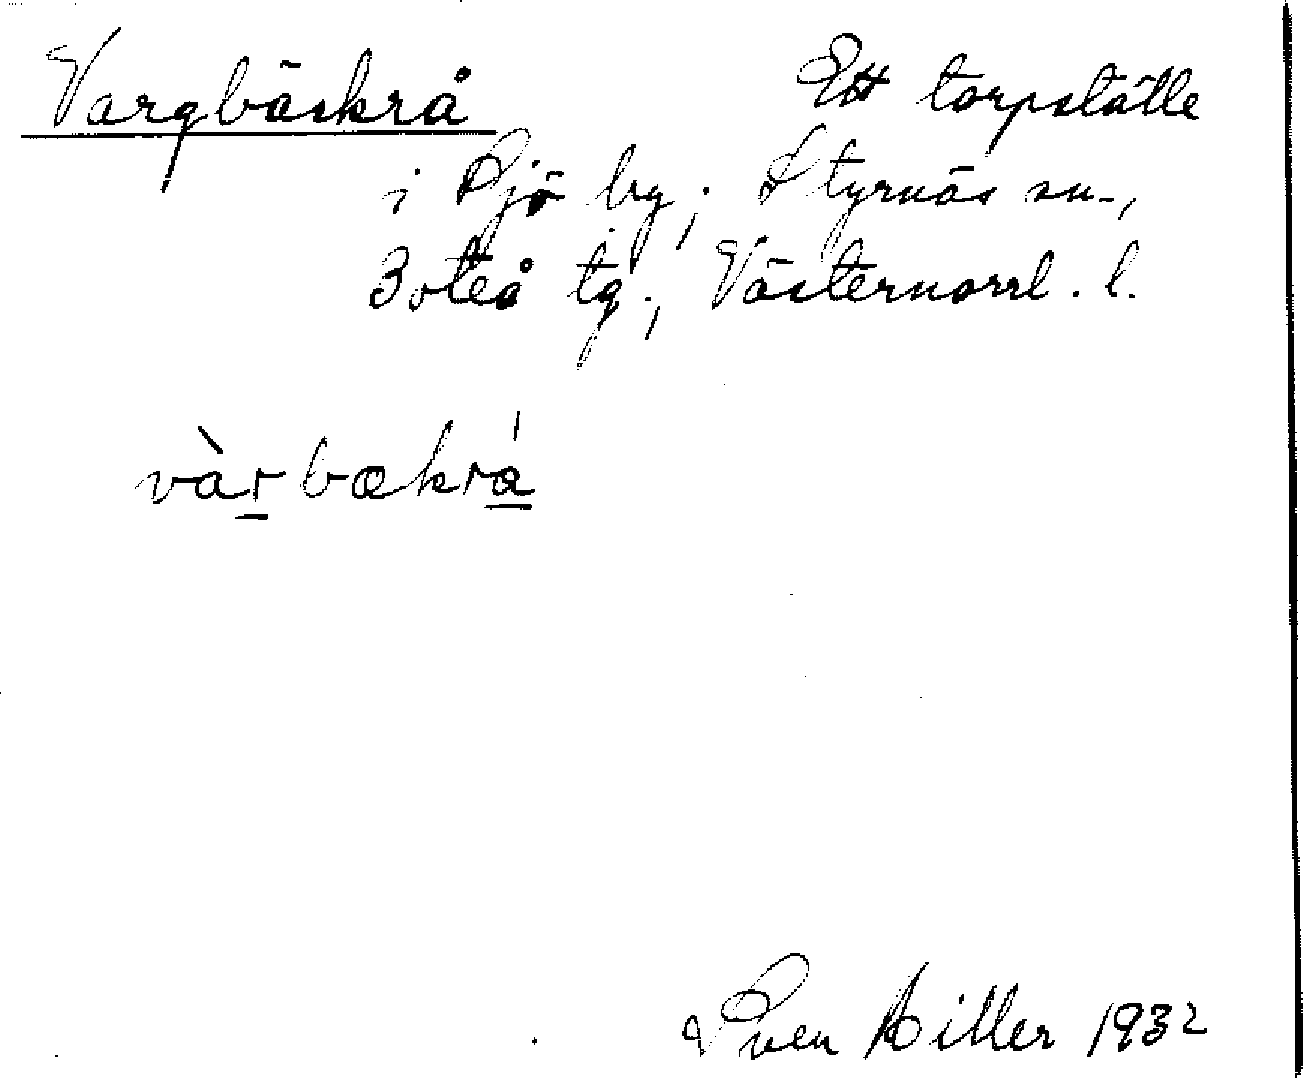 Vargbäskrå
Ett torpställe
i Sjö by, Styrnäs sn.,
Boteå tg., Västernorrl. l.
vàrbækrá
Sven Hiller 1932